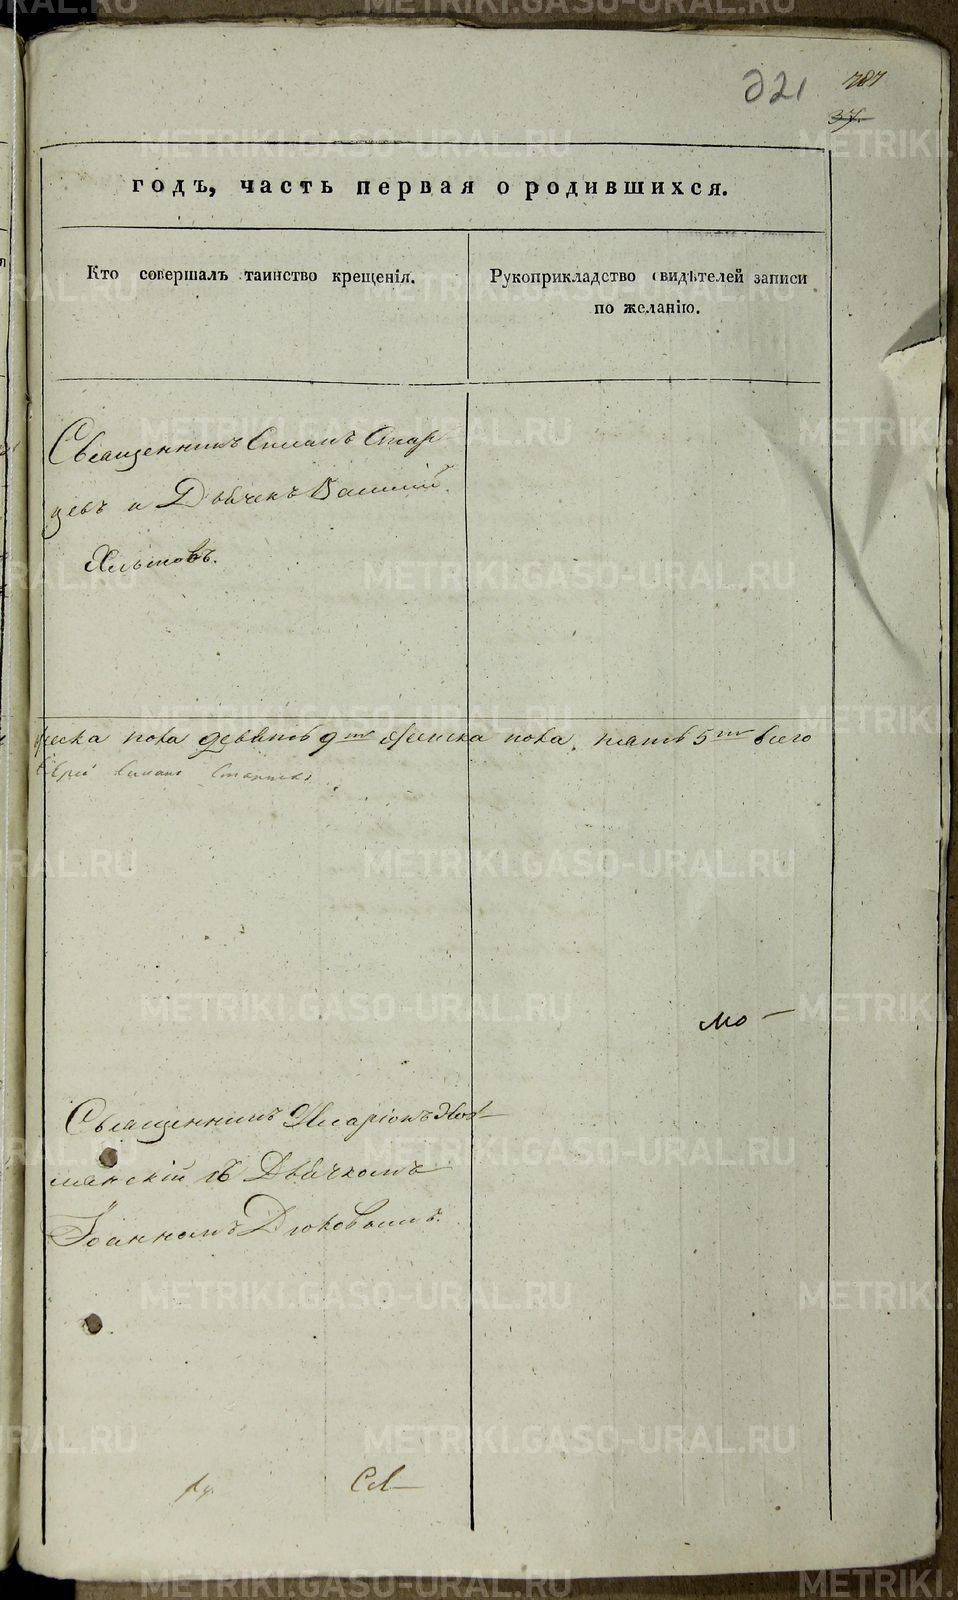 321 787
37.
годъ, часть первая о родившихся.
Кто совершалъ таинство крещенія.
Рукоприкладство свидѣтелей записи
по желанію.
Священникъ Симанъ Стар-
цевъ и Дьячекъ Василій
Хлыновъ.
пола девять 9ть женска пола, пять 5ть всего
Іерей Симанъ
мо —
Священникъ Иларіонъ
съ Дьячкомъ
Іоанномъ Дюковымъ.
METRIKI.GASO-URAL.RU